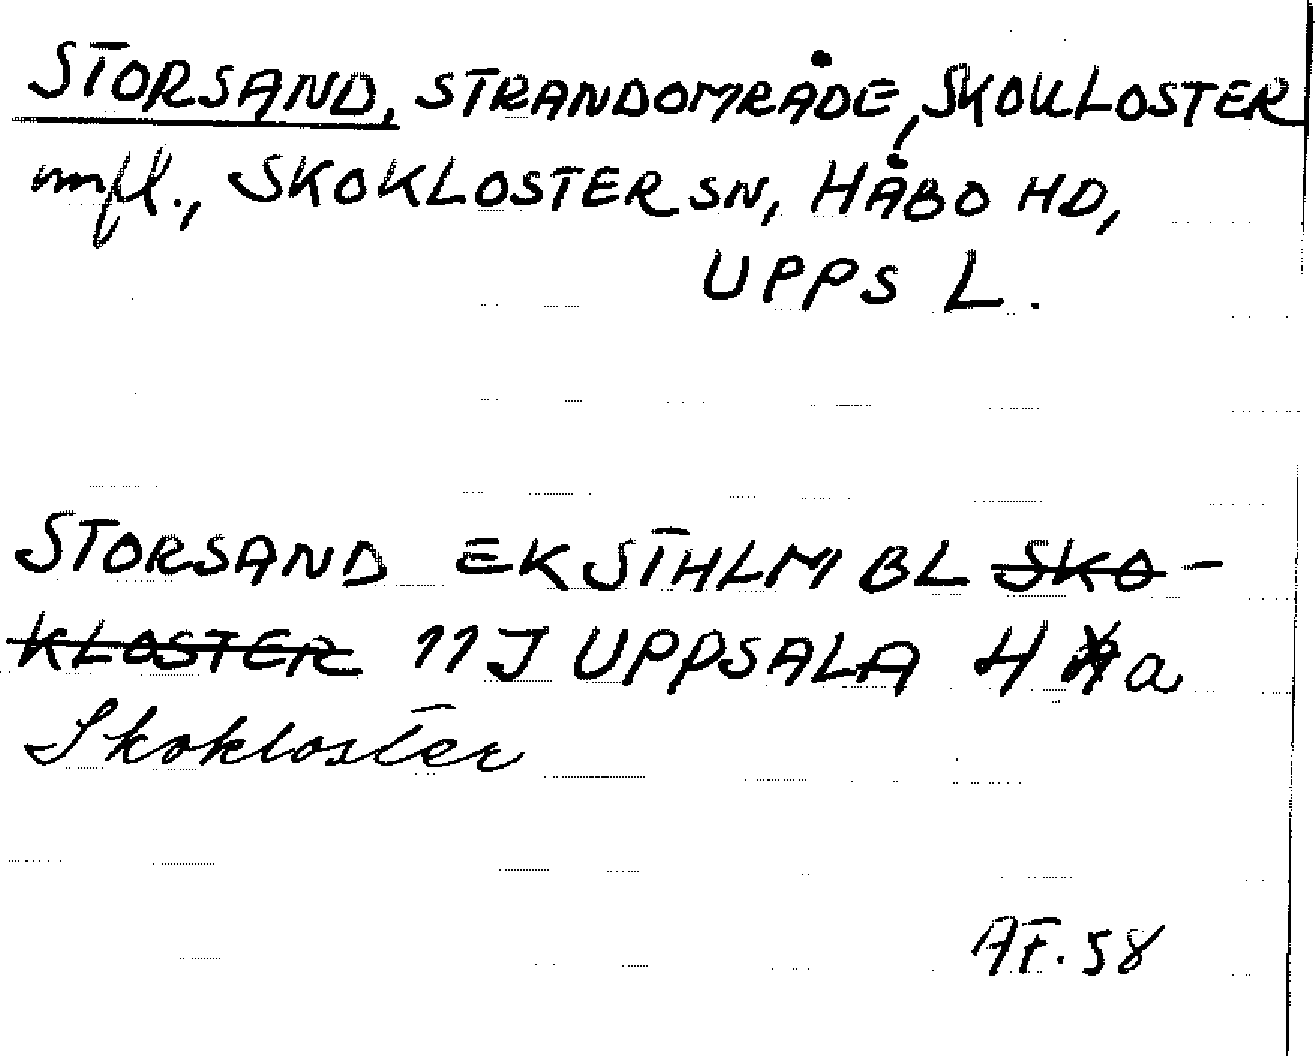 STORSAND, STRANDOMRÅDE, SKOKLOSTER
m fl., SKOKLOSTER SN, HÅBO HD,
UPPS L.
STORSAND EK STHLM BL SKO-
KLOSTER 11J UPPSALA 4 a
Skokloster
AF. 58